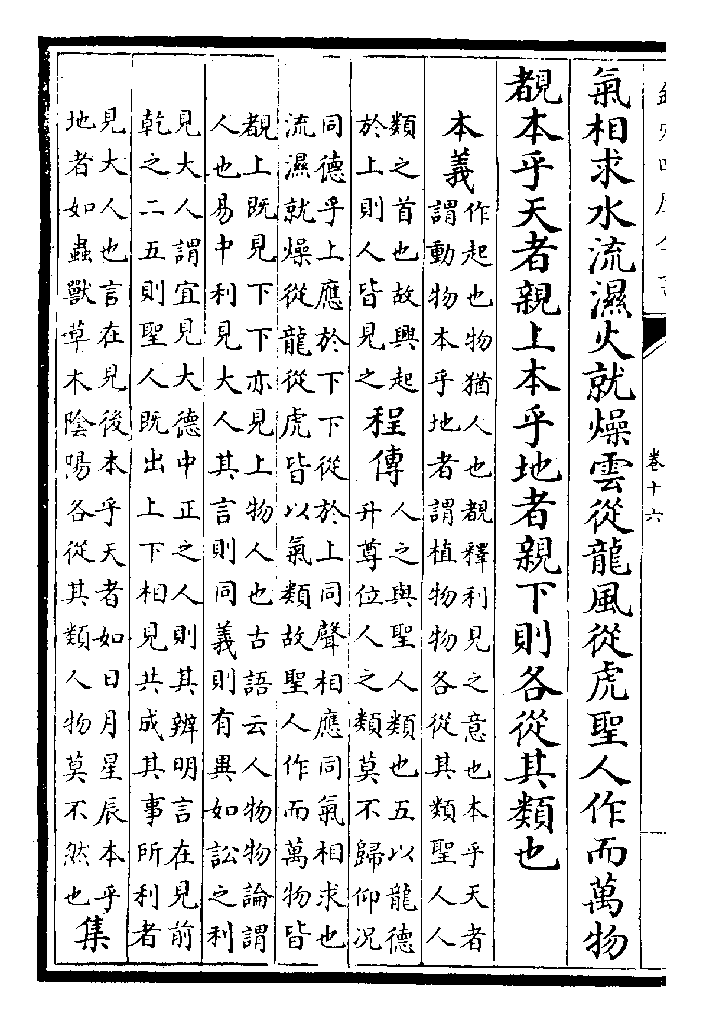 卷十六
氣相求水流濕火就燥雲從龍風從虎聖人作而萬物
覩本乎天者親上本乎地者親下則各從其類也
本義
作起也物猶人也覩釋利見之意也本乎天者
謂動物本乎地者謂植物物各從其類聖人人
類之首也故興起
於上則人皆見之
程傳
人之與聖人類也五以龍德
升尊位人之類莫不歸仰况
同德乎上應於下下從於上同聲相應同氣相求也
流濕就燥從龍從虎皆以氣類故聖人作而萬物皆
覩上既見下下亦見上物人也古語云人物物論謂
人也易中利見大人其言則同義則有異如訟之利
見大人謂宜見大德中正之人則其辨明言在見前
乾之二五則聖人既出上下相見共成其事所利者
見大人也言在見後本乎天者如日月星辰本乎
地者如蟲獸草木陰陽各從其類人物莫不然也
集